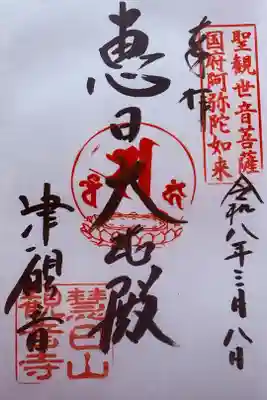 聖観世音菩薩
国府阿弥陀如来
令和八年三月八日
奉拝
恵日大悲殿
津観音
慧日山
観音寺